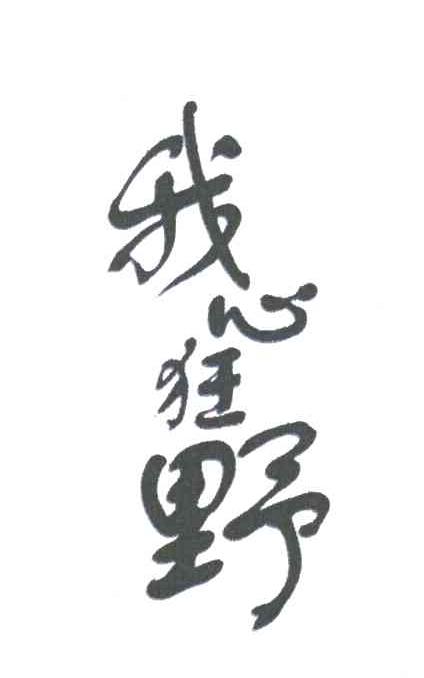 我心狂野